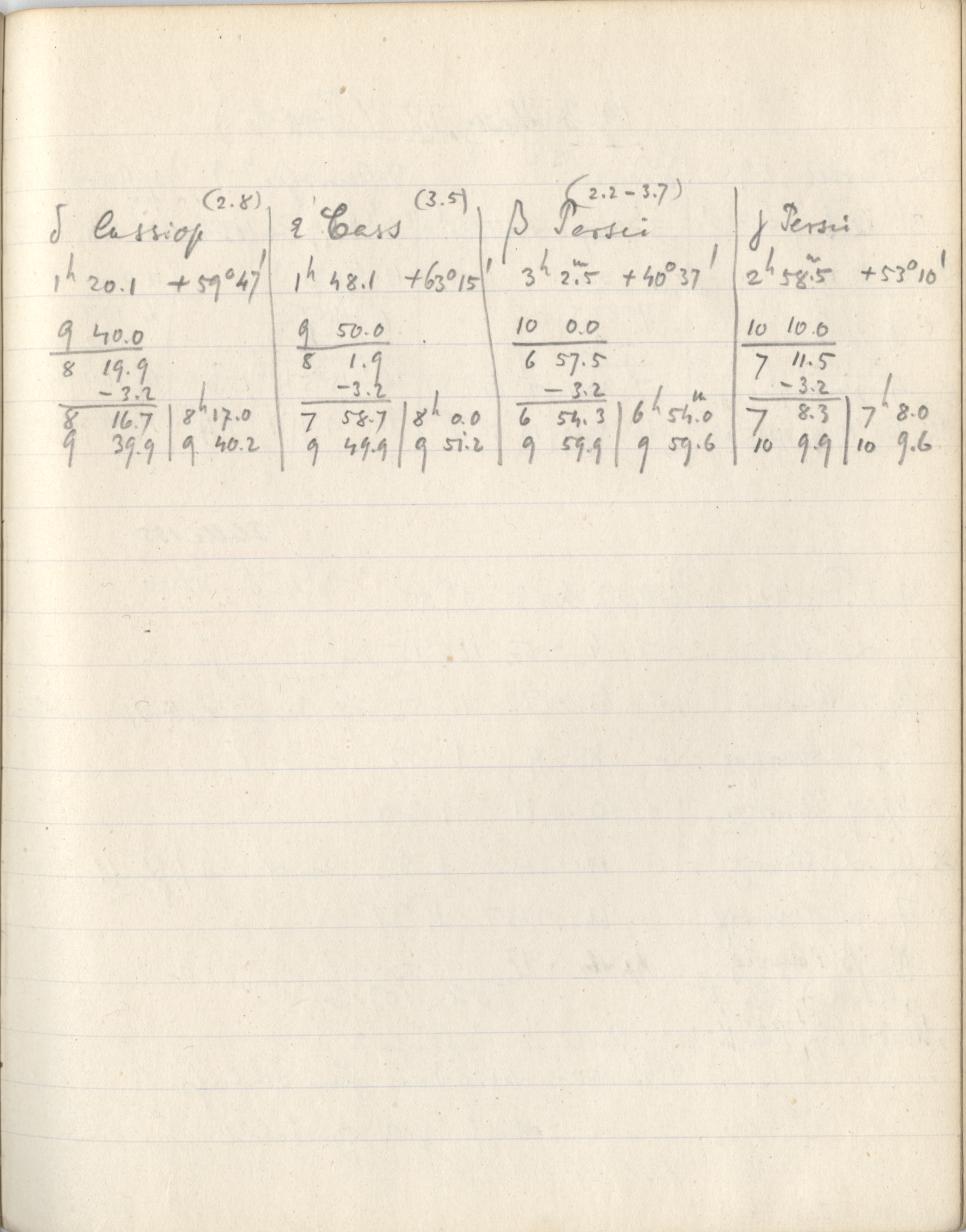 (2.8) (3.5) (2.2-3.7)
δ Cassiop | ε Cass | β Persei | γ Persei
1h 20.1 +59°47' | 1h 48.1 +63°15' | 3h 2m.5 +40°37' | 2h 58m.5 +53°10'
9 40.0 | 9 50.0 | 10 0.0 | 10 10.0
8 19.9 | 8 1.9 | 6 57.5 | 7 11.5
-3.2 | -3.2 | -3.2 | -3.2
8 16.7 | 8h 17.0 | 7 58.7 | 8h 0.0 | 6 54.3 | 6h 54m.0 | 7 8.3 | 7h 8.0
9 39.9 | 9 40.2 | 9 49.9 | 9 51.2 | 9 59.9 | 9 59.6 | 10 9.9 | 10 9.6